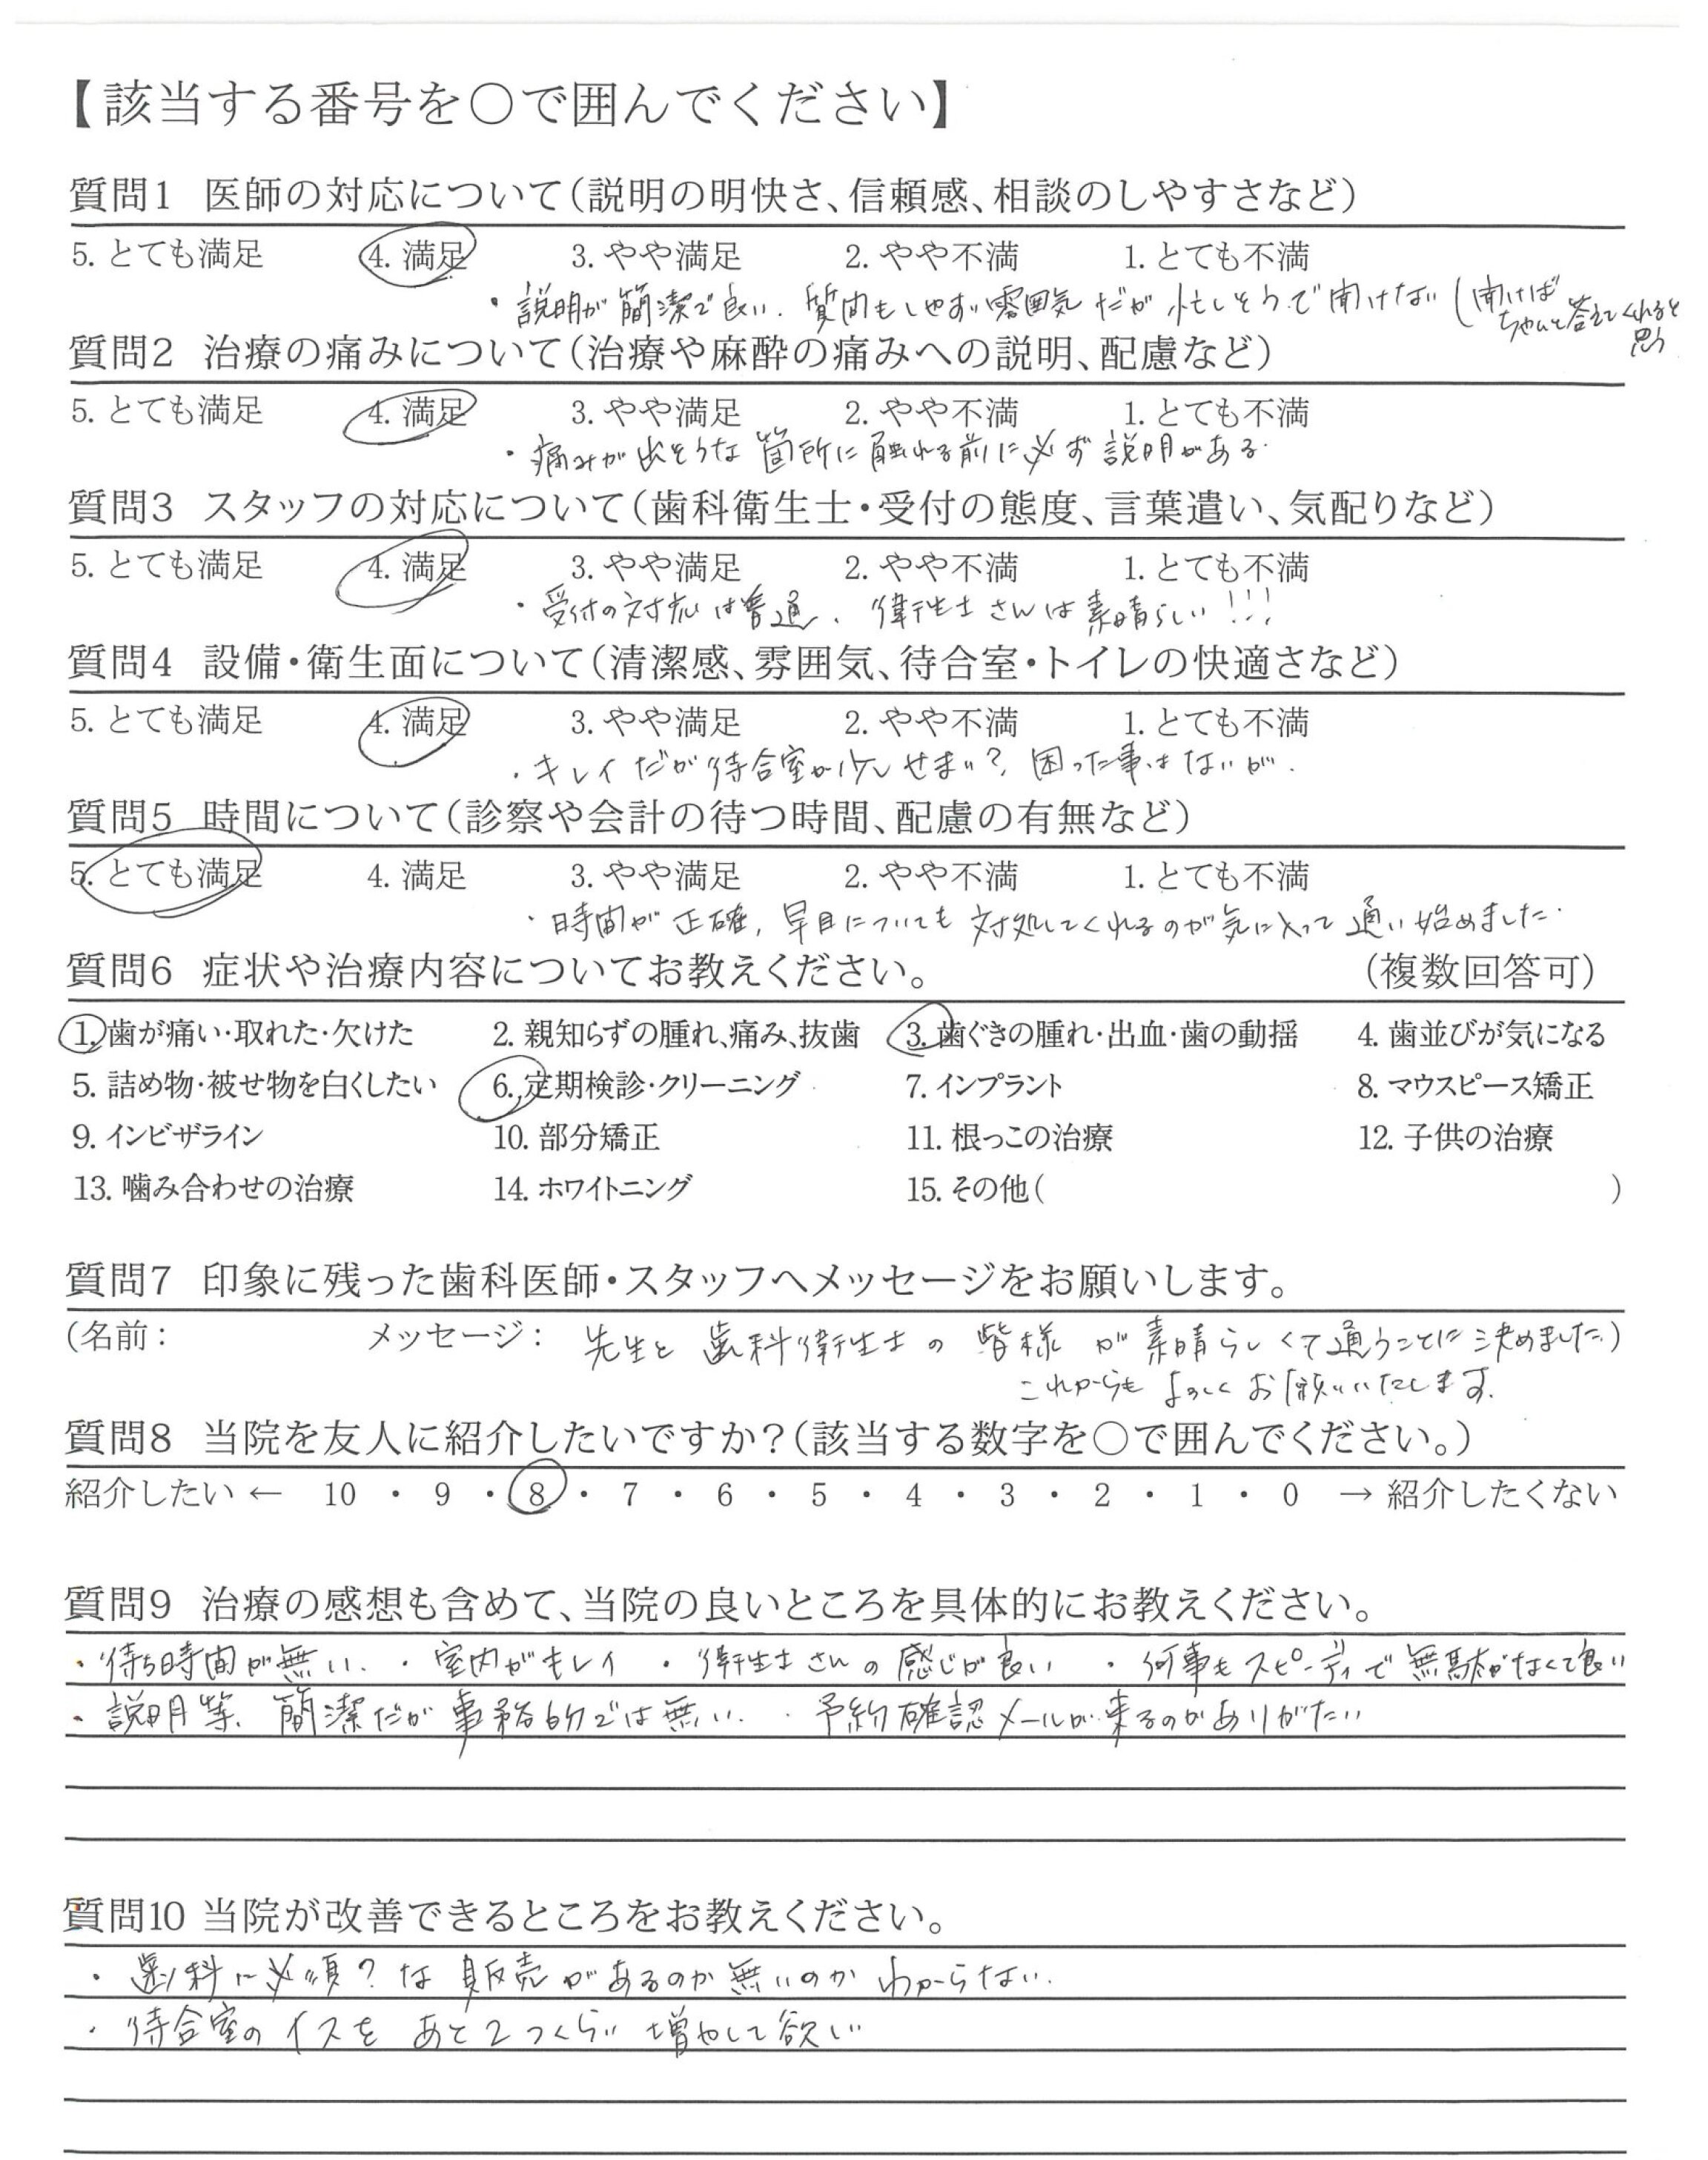 【該当する番号を〇で囲んでください】
質問1 医師の対応について(説明の明快さ、信頼感、相談のしやすさなど)
5. とても満足 4. 満足 3. やや満足 2. やや不満 1. とても不満
・説明が簡潔で良い. 質問もしやすい雰囲気だが忙しそうで聞けない(聞けば
ちゃんと答えてくれると
思う
質問2 治療の痛みについて(治療や麻酔の痛みへの説明、配慮など)
5. とても満足 4. 満足 3. やや満足 2. やや不満 1. とても不満
・痛みが出そうな箇所に触れる前に必ず説明がある.
質問3 スタッフの対応について(歯科衛生士・受付の態度、言葉遣い、気配りなど)
5. とても満足 4. 満足 3. やや満足 2. やや不満 1. とても不満
・受付の対応は普通、衛生士さんは素晴らしい!!!
質問4 設備・衛生面について(清潔感、雰囲気、待合室・トイレの快適さなど)
5. とても満足 4. 満足 3. やや満足 2. やや不満 1. とても不満
・キレイだが待合室が少しせまい?, 困った事はないが.
質問5 時間について(診察や会計の待つ時間、配慮の有無など)
5. とても満足 4. 満足 3. やや満足 2. やや不満 1. とても不満
・時間が正確, 早目についても対処してくれるのが気に入って通い始めました.
質問6 症状や治療内容についてお教えください。 (複数回答可)
1. 歯が痛い・取れた・欠けた 2. 親知らずの腫れ、痛み、抜歯 3. 歯ぐきの腫れ・出血・歯の動揺 4. 歯並びが気になる
5. 詰め物・被せ物を白くしたい 6. 定期検診・クリーニング 7. インプラント 8. マウスピース矯正
9. インビザライン 10. 部分矯正 11. 根っこの治療 12. 子供の治療
13. 噛み合わせの治療 14. ホワイトニング 15. その他( )
質問7 印象に残った歯科医師・スタッフへメッセージをお願いします。
(名前: メッセージ: 先生と歯科衛生士の皆様が素晴らしくて通うことに決めました.)
これからもよろしくお願いいたします.
質問8 当院を友人に紹介したいですか?(該当する数字を〇で囲んでください。)
紹介したい ← 10 ・ 9 ・ 8 ・ 7 ・ 6 ・ 5 ・ 4 ・ 3 ・ 2 ・ 1 ・ 0 → 紹介したくない
質問9 治療の感想も含めて、当院の良いところを具体的にお教えください。
・待ち時間が無い. ・室内がキレイ ・衛生士さんの感じが良い ・何事もスピーディで無駄がなくて良い
・説明等、簡潔だが事務的では無い. ・予約確認メールが来るのがありがたい
質問10 当院が改善できるところをお教えください。
・歯科に必須?な販売があるのか無いのかわからない.
・待合室のイスをあと2つくらい増やして欲しい